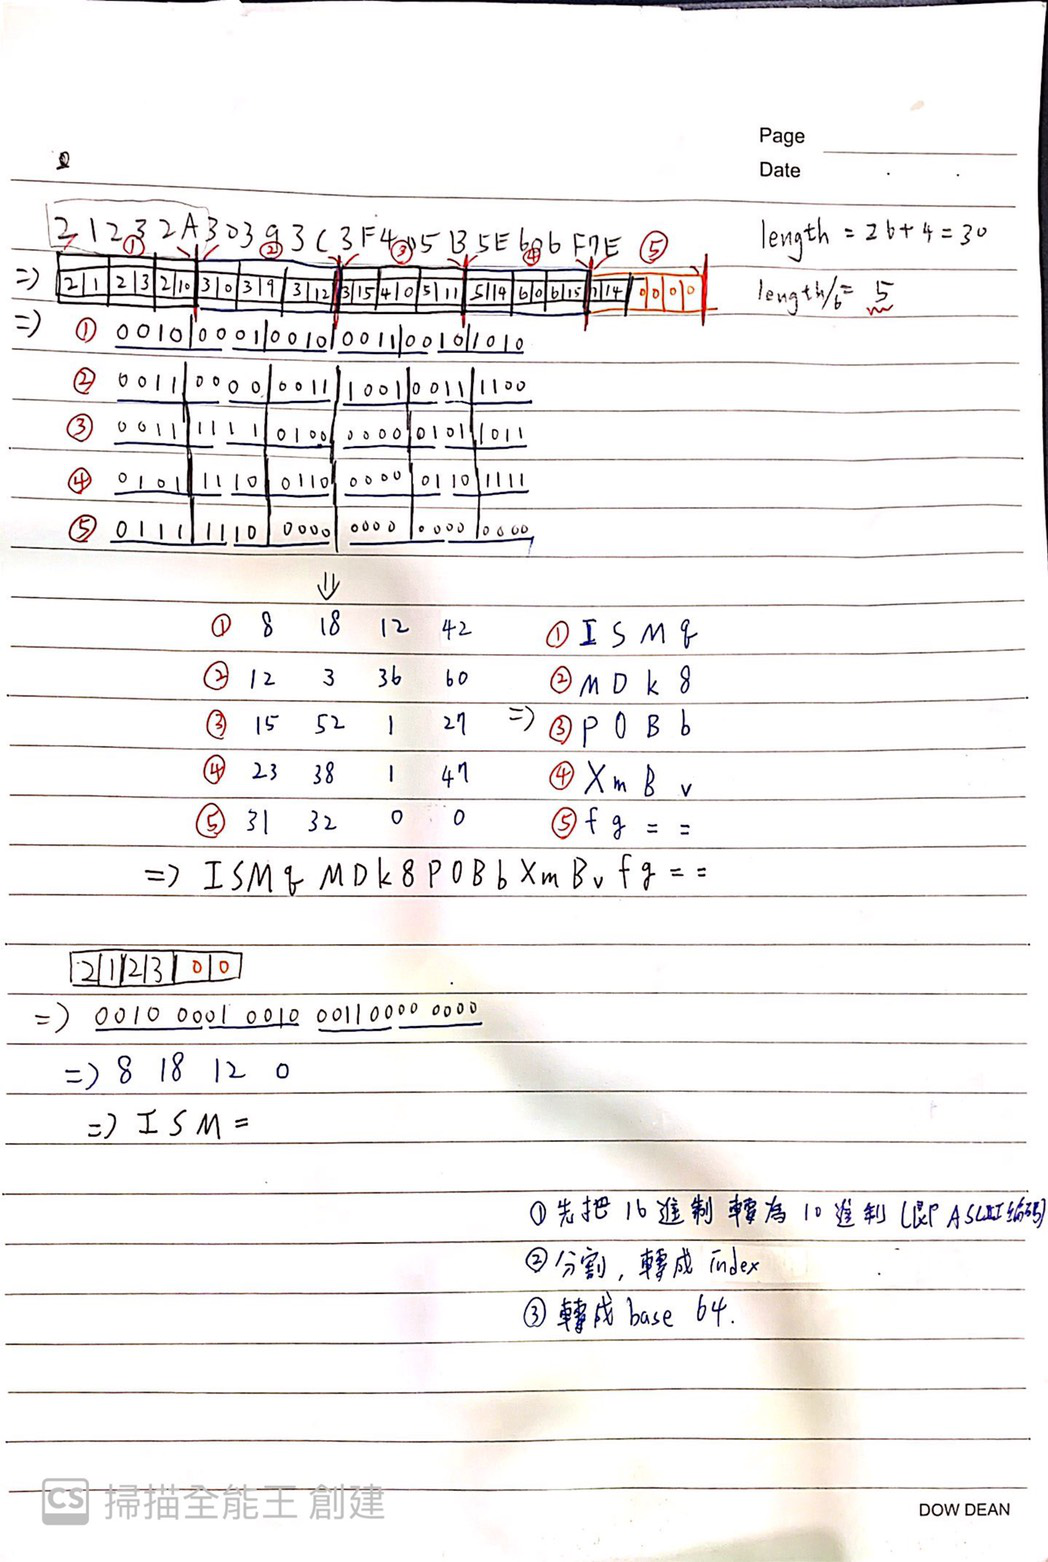 Page
Date
2 1 2 3 2 A 3 0 3 9 3 C 3 F 4 0 5 B 5 E 6 0 6 F 7 E
① ② ③ ④ ⑤
length = 26+4=30
=> 2 1 2 3 2 10 3 0 3 9 3 12 3 15 4 0 5 11 5 14 6 0 6 15 7 14 0 0 0 0
length/6= 5
=> ① 0010 00 01 0010 0011 00 10 1010
② 0011 00 00 0011 1001 00 11 1100
③ 0011 11 11 0100 0000 01 01 1011
④ 0101 11 10 0110 0000 01 10 1111
⑤ 0111 11 10 0000 0000 0000 0000
⇓
① 8 18 12 42 ① I S M q
② 12 3 36 60 ② M D k 8
③ 15 52 1 27 => ③ P 0 B b
④ 23 38 1 47 ④ X m B v
⑤ 31 32 0 0 ⑤ f g = =
=> I S M q M D k 8 P 0 B b X m B v f g = =
2 1 2 3 0 0
=> 0010 0001 0010 0011 0000 0000
=> 8 18 12 0
=> I S M =
①先把16進制轉為10進制(即ASCII編碼)
②分割,轉成index
③轉成base 64.
CS 掃描全能王 創建
DOW DEAN